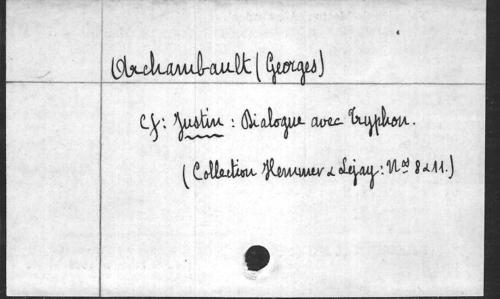 Archambault (Georges)
Cf: Justin : Dialogue avec Tryphon.
(Collection Hemmer & Lejay: Nos 8 & 11.)